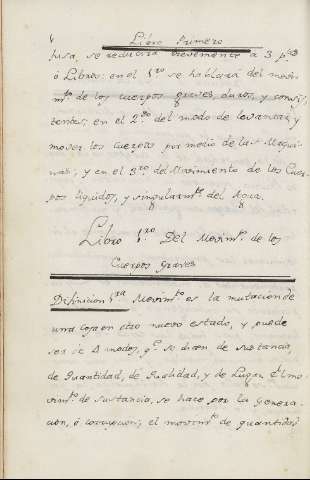 Libro Primero
fusa, se reducirá brevemente a 3 p.tes
ó Libros: en el 1.ro se hablará del movi-
m.to de los cuerpos graves, duros, y consis-
tentes; en el 2.do del modo de levantar, y
mover los cuerpos por medio de las Maqui-
nas; y en el 3.ro del Movimiento de los Cuer-
pos liquidos, y singularm.te del Agua.
Libro 1.ro Del Movim.to de los
Cuerpos Graves
Definicion 1.ra Movim.to es la mutacion de
una cosa en otro nuevo estado, y puede
ser de 4 modos, q.e se dicen de sustancia,
de Quantidad, de Qualidad, y de Lugar. El mo-
vim.to de sustancia, se hace por la genera-
cion, ó corrupcion; el movim.to de quantidad